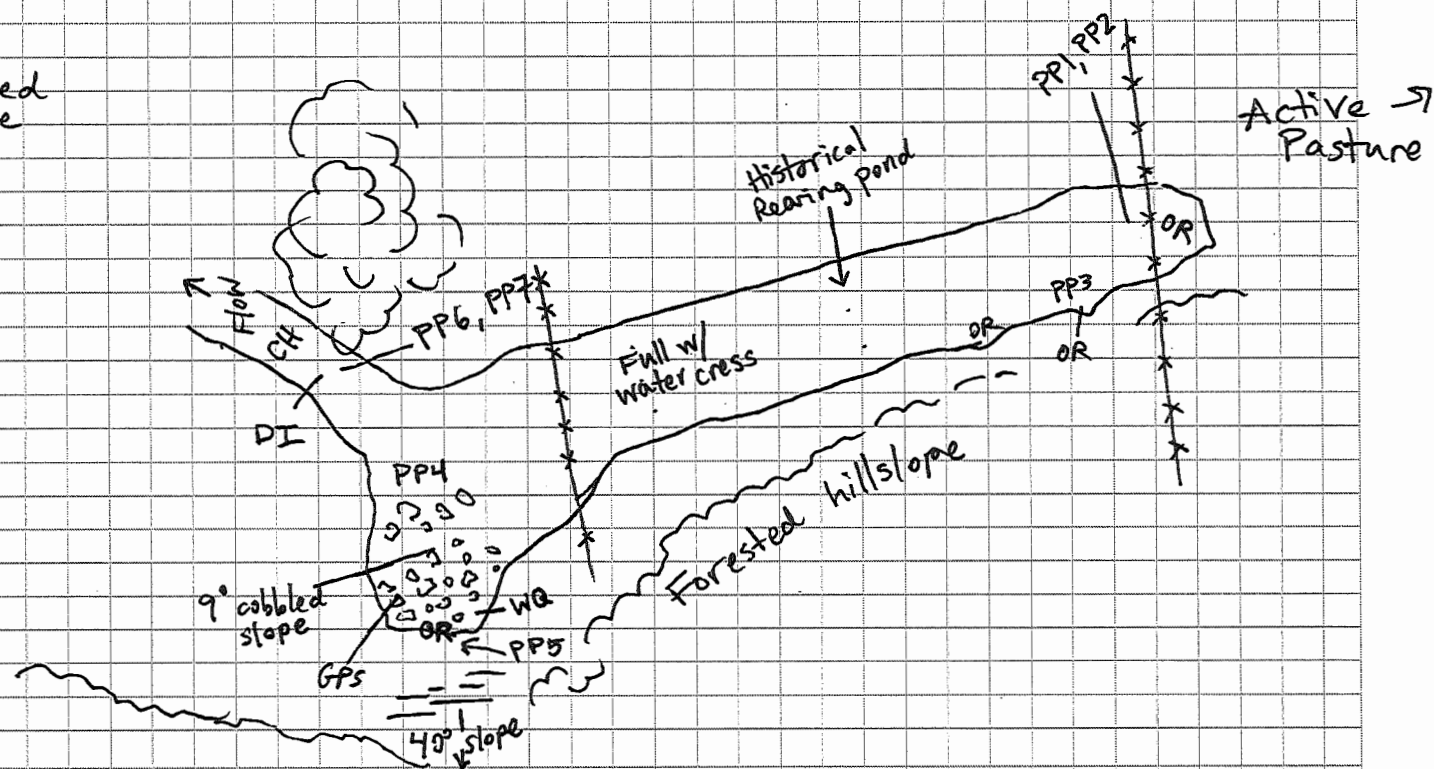 ed
e
PP1, PP2
Active →
Pasture
Historical
Rearing pond
OR
Flow
CH
PP6, PP7
PP3
OR
OR
Full w/
water cress
DI
PP4
Forested hillslope
9° cobbled
slope
WQ
OR
← PP5
GPS
40° slope